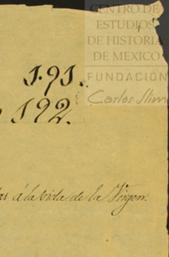 CENTRO DE
ESTUDIOS
DE HISTORIA
DE MEXICO
FUNDACIÓN
Carlos Slim
191.
192.
á la vista de la Virgen.